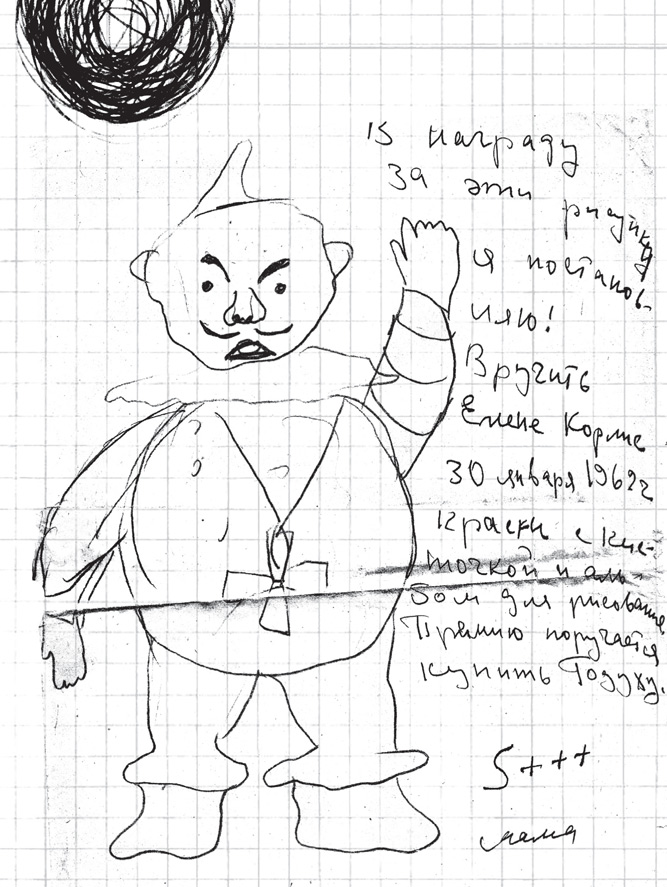 В награду
за эти рисунки
я постанов-
ляю!
Вручить
Елене Корме
30 января 1962г
краски с кис-
точкой и аль-
бом для рисования.
Премию поручается
купить Годуху.
5+++
мама